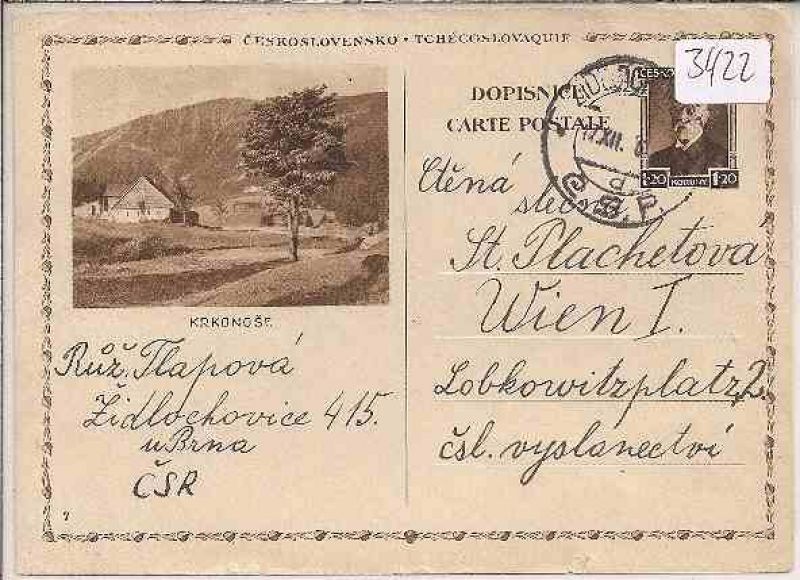 ČESKOSLOVENSKO • TCHÉCOSLOVAQUIE
3422
DOPISNICE
CARTE POSTALE
17.XII.
1·20 KORUNY 1·20
Ctěná
St. Plachetova
Wien I.
Lobkowitzplatz, 2.
čsl. vyslanectví
KRKONOŠE
Růž. Tlapová
Židlochovice 415.
u Brna
ČSR
7